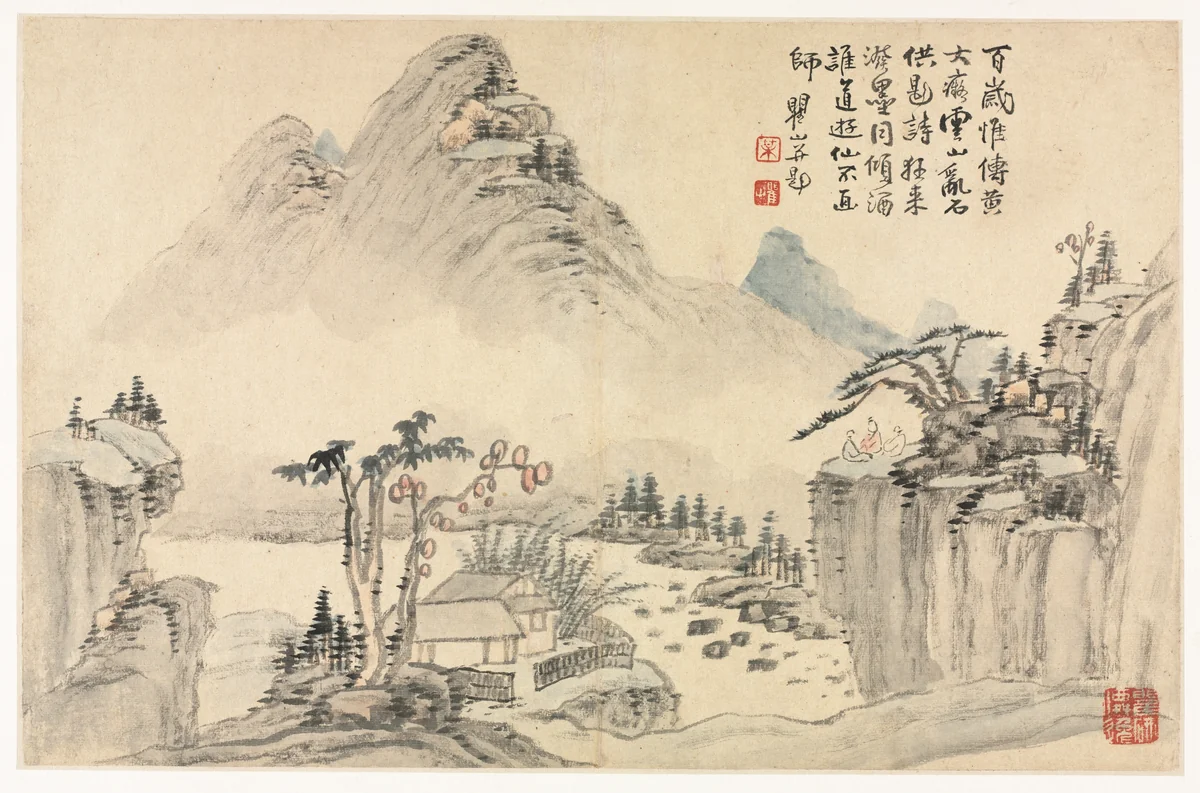 百歲惟傳黃
大癡雲山亂石
供題詩狂来
潑墨同傾酒
誰道遊仙不直
師 瞿山并題